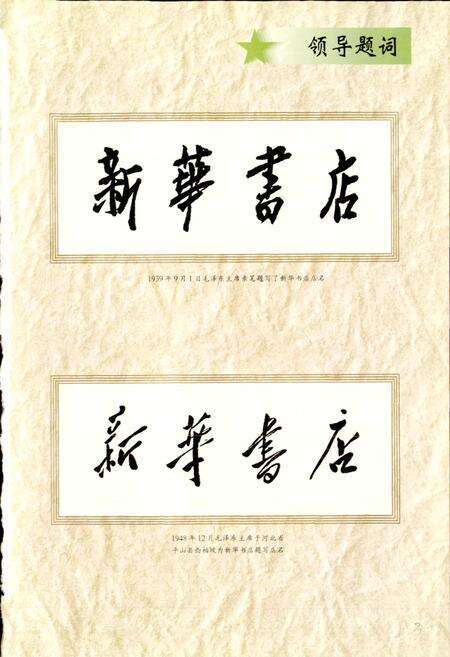 领导题词
新華書店
1939年9月1日毛泽东主席亲笔题写了新华书店店名
新华书店
1948年12月毛泽东主席于河北省
平山县西柏坡为新华书店题写店名